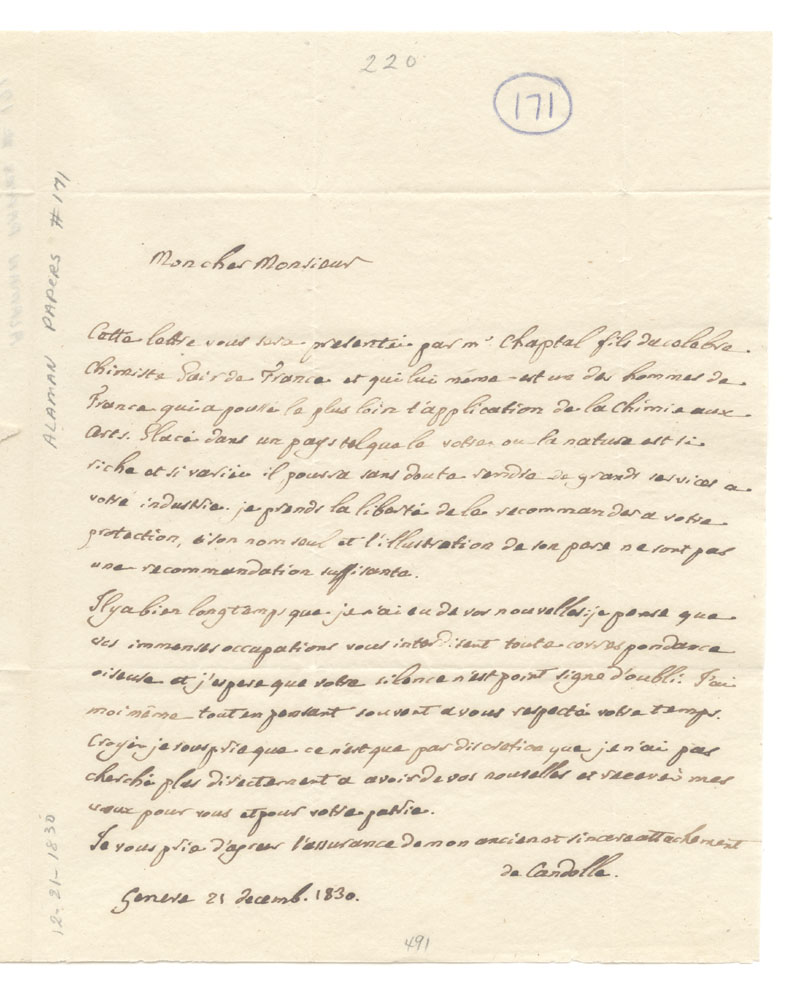 220
171
ALAMAN PAPERS #171
Mon cher Monsieur
Cette lettre vous sera presentée par mr Chaptal fils du celebre
Chimiste Pair de France et qui lui meme est un des hommes de
France qui a poussé le plus loin l'application de la Chimie aux
arts. Placé dans un pays tel que le votre ou la nature est si
riche et si variée il pourra sans doute rendre de grands services a
votre industrie. je prends la liberté de le recommander a votre
protection, si son nom seul et l'illustration de son pere ne sont pas
une recommandation suffisante.
Il y a bien longtemps que je n'ai eu de vos nouvelles: je pense que
vos immenses occupations vous interdisent toute correspondance
oiseuse et j'espere que votre silence n'est point signe d'oubli. J'ai
moi même tout en pensant souvent a vous respecté votre temps.
Croyez je vous prie que ce n'est que par discretion que je n'ai pas
cherché plus directement a avoir de vos nouvelles et recevez mes
vœux pour vous et pour votre patrie.
Je vous prie d'agreer l'assurance de mon ancien et sincere attachement
de Candolle.
Geneve 21 decemb. 1830.
12-21-1830
491